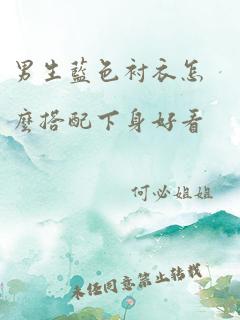 男生藍色衬衣怎
麼搭配下身好看
何必姐姐
未经同意禁止转载